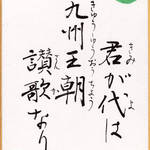 君が代は
きみ よ
九州王朝
きゅうしゅうおうちょう
讃歌なり
さんか